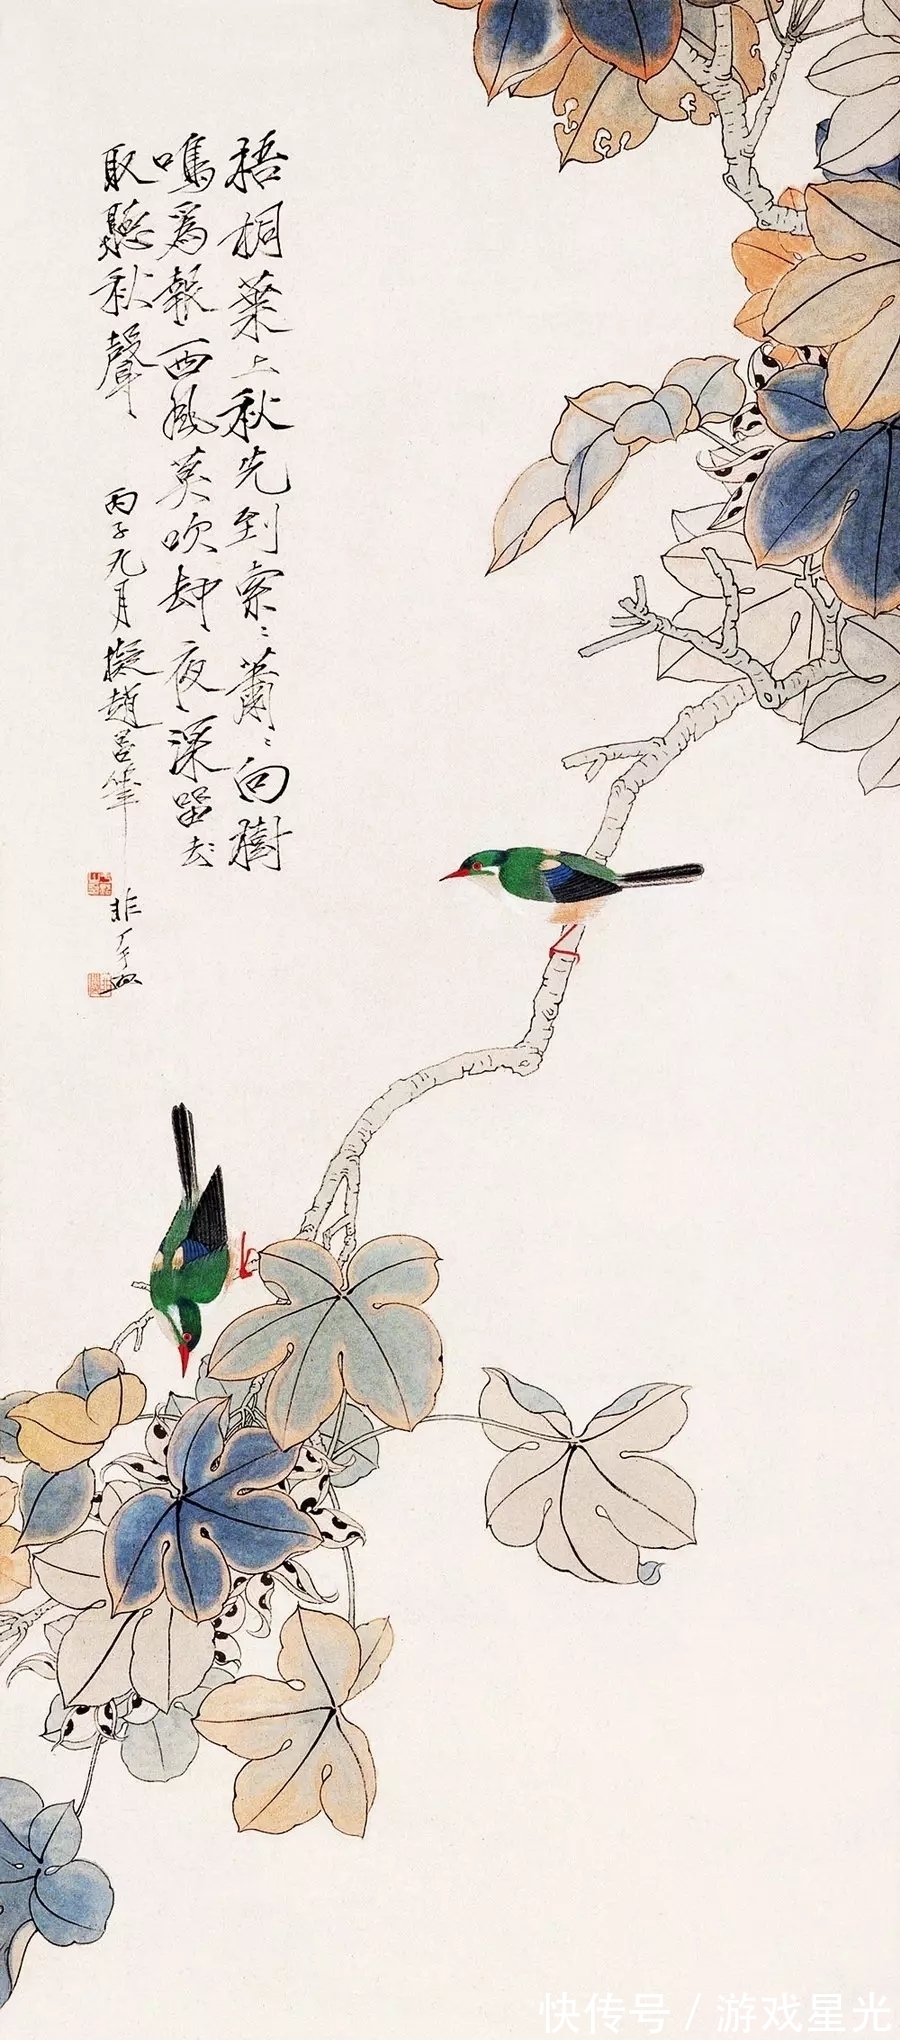 梧桐葉上秋先到索〻蕭〻向樹
鳴爲報西風莫吹却夜深留去
取聽秋聲
丙子九月擬趙昌筆
非厂
快传号 / 游戏星光